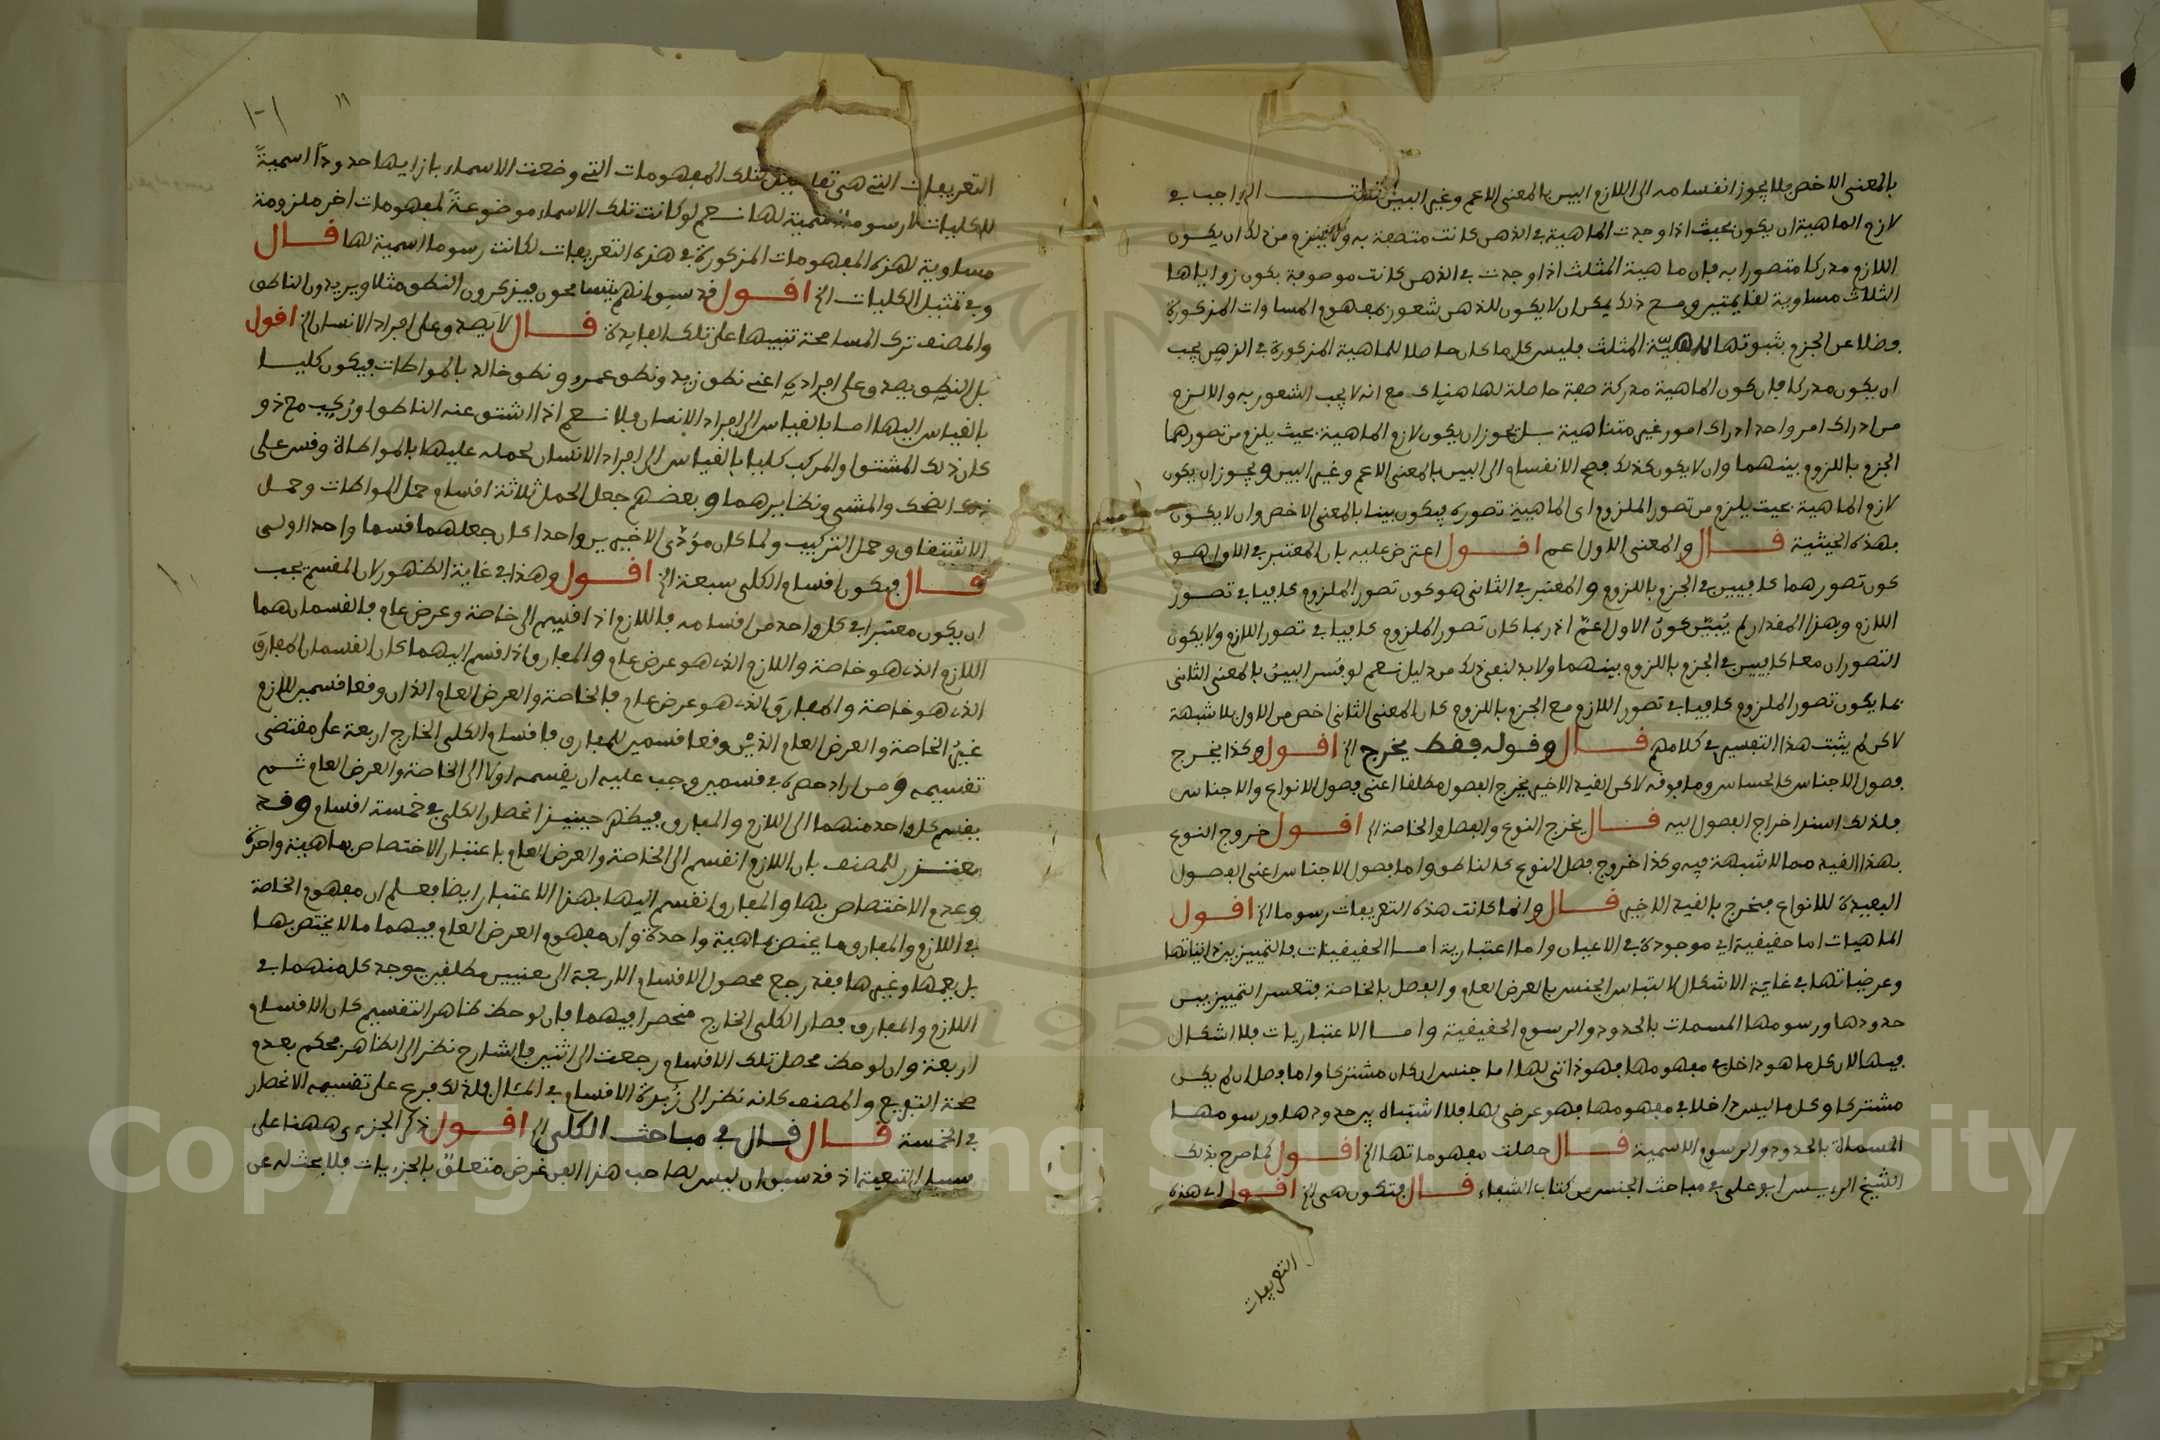 بالمعنى الاخص فلا يجوز انفسامه الى اللازم البين بالمعنى الاعم وغير البين قلت الواجب في
لازم الماهية ان يكون بحيث اذا وجدت الماهية في الذهن كانت متصفة به ولا يلزم من ذلك ان يكون
اللازم مدركا متصورا به فان ماهية المثلث اذا وجدت في الذهن كانت موصوفة بكون زواياها
الثلاث مساوية لقايمتين ومع ذلك يمكن ان لا يكون للذهن شعور بمفهوم المساوات المذكورة
فضلا عن الجزم بثبوتها لماهية المثلث فليس كل ما كان حاصلا للماهية المذكورة في الذهن يجب
ان يكون مدركا فان كون الماهية مدركة صفة حاصلة لها هناك مع انه لا يجب الشعور به والا لزم
من ادراك امر واحد ادراك امور غير متناهية بل يجوز ان يكون لازم الماهية بحيث يلزم من تصورهما
الجزم باللزوم بينهما وان لا يكون كذلك فصح الانفسام الى البين بالمعنى الاعم وغير البين ويجوز ان يكون
لازم الماهية بحيث يلزم من تصور الملزوم اى الماهية تصوره فيكون بينا بالمعنى الاخص وان لا يكون
بهذه الحيثية قال والمعنى الاول اعم اقول اعترض عليه بان المعتبر في الاول هو
كون تصورهما كافيين في الجزم باللزوم والمعتبر في الثانى هو كون تصور الملزوم كافيا في تصور
اللازم وبهذا المقدار لم يُبَيّن كونُ الاول اعمّ اذ ربما كان تصور الملزوم كافيا في تصور اللازم ولا يكون
التصوران معا كافيين في الجزم باللزوم بينهما ولا بد لنفى ذلك من دليل نعم لو فسر البين بالمعنى الثانى
بما يكون تصور الملزوم كافيا في تصور اللازم مع الجزم باللزوم كان المعنى الثانى اخص من الاول بلا شبهة
لاكن لم يثبت هذا التفسير في كلامهم قال وقوله فقط يخرج الخ اقول وكذا يخرج
فصول الاجناس كالحساس وما فوقه لاكن القيد الاخير يخرج الفصول مطلقا اعنى فصول الانواع والاجناس
فلذلك اسند اخراج الفصول اليه قال يخرج النوع والفصل والخاصة الخ اقول خروج النوع
بهذا القيد مما لا شبهة فيه وكذا خروج فصل النوع كالناطق واما فصول الاجناس اعنى الفصول
البعيدة للانواع فتخرج بالقيد الاخير قال وانما كانت هذه التعريفات رسوما الخ اقول
الماهيات اما حقيقية اي موجودة في الاعيان واما اعتبارية اما الحقيقيات فالتمييز بين ذاتياتها
وعرضياتها في غاية الاشكال لالتباس الجنس بالعرض العام والفصل بالخاصة فتعسر التمييز بين
حدودها ورسومها المسمات بالحدود والرسوم الحقيقية واما الاعتباريات فلا اشكال
فيها لان كل ما هو داخل في مفهومها فهو ذاتى لها اما جنس ان كان مشتركا واما فصل ان لم يكن
مشتركا وكل ما ليس داخلا في مفهومها فهو عرضى لها فلا اشتباه بين حدودها ورسومها
المسماة بالحدود والرسوم الاسمية قال حصلت مفهوماتها الخ اقول كما صرح بذلك
الشيخ الرييس ابو على في مباحث الجنس من كتاب الشفاء قال فتكون هى الخ اقول اى هذه
التعريفات
١٠١
التعريفات التى هى تفاصيل لتلك المفهومات التى وضعت الاسماء بازايها حدوداً اسميةً
للكليات لا رسوما اسمية لها نعم لو كانت تلك الاسماء موضوعةً لمفهومات اخر ملزومة
مساوية لهذه المفهومات المذكورة في هذه التعريفات لكانت رسوما اسمية لها قال
وفي تمثيل الكليات الخ اقول قد سبق انهم يتسامحون فيذكرون النطق مثلا ويريدون الناطق
والمصنف ترك المسامحة تنبيها على تلك الفايدة قال لا يصدق على افراد الانسان الخ اقول
بل النطق يصدق على افراده اعنى نطق زيد ونطق عمرو ونطق خالد بالمواطات فيكون كليا
بالقياس اليها اما بالقياس الى افراد الانسان فلا نعم اذا اشتق عنه الناطق او رُكِّب مع ذو
كان ذلك المشتق او المركب كليا بالقياس الى افراد الانسان لحمله عليها بالمواطاة وقس على
ذلك الضحك والمشى ونظايرهما وبعضهم جعل الحمل ثلاثة اقسام حمل المواطات وحمل
الاشتقاق وحمل التركيب ولما كان مؤدّى الاخيرين واحدا كان جعلهما قسما واحدا اولى
قال فيكون اقسام الكلى سبعة الخ اقول وهذا في غاية الظهور لان المقسم يجب
ان يكون معتبرا في كل واحد من اقسامه فاللازم اذا قسم الى خاصة وعرض عام فالقسمان هما
اللازم الذي هو خاصة واللازم الذي هو عرض عام والمفارق اذا قسم اليهما كان القسمان المفارق
الذي هو خاصة والمفارق الذي هو عرض عام فالخاصة والعرض العام الذان وقعا قسمين للازم
غيرُ الخاصة والعرض العام الذين وقعا قسمين للمفارق فاقسام الكلى الخارج اربعة على مقتضى
تقسيمه ومن اراد حصره في قسمين وجب عليه ان يقسمه اولا الى الخاصة والعرض العام ثم
يقسم كل واحد منهما الى اللازم والمفارق فيظهر حينيذ انحصار الكلى في خمسة اقسام وقد
يعتذر للمصنف بان اللازم انقسم الى الخاصة والعرض العام باعتبار الاختصاص بماهية واحدة
وعدم الاختصاص بها والمفارق انقسم اليها بهذا الاعتبار ايضا فعلم ان مفهوم الخاصة
في اللازم والمفارق ما يختص بماهية واحدة وان مفهوم العرض العام فيهما ما لا يختص بها
بل يعمها وغيرها فقد رجع محصول الاقسام الاربعة الى معنيين مطلقين يوجد كل منهما في
اللازم والمفارق فصار الكلى الخارج منحصرا فيهما فان لوحظ ظاهر التقسيم كان الاقسام
اربعة وان لوحظ محصل تلك الاقسام رجعت الى اثنين فالشارح نظر الى الظاهر فحكم بعدم
صحة التفريع والمصنف كانه نظر الى زُبدة الاقسام في المثال فلذلك فرع على تقسيمه الانحصار
في الخمسة قال قال في مباحث الكلى الخ اقول ذكر الجزءى ههنا على
سبيل التبعية اذ قد سبق ان ليس لصاحب هذا الفن غرض متعلقٌ بالجزءيات فلا بحث له عن
Copyright © King Saud University
1957